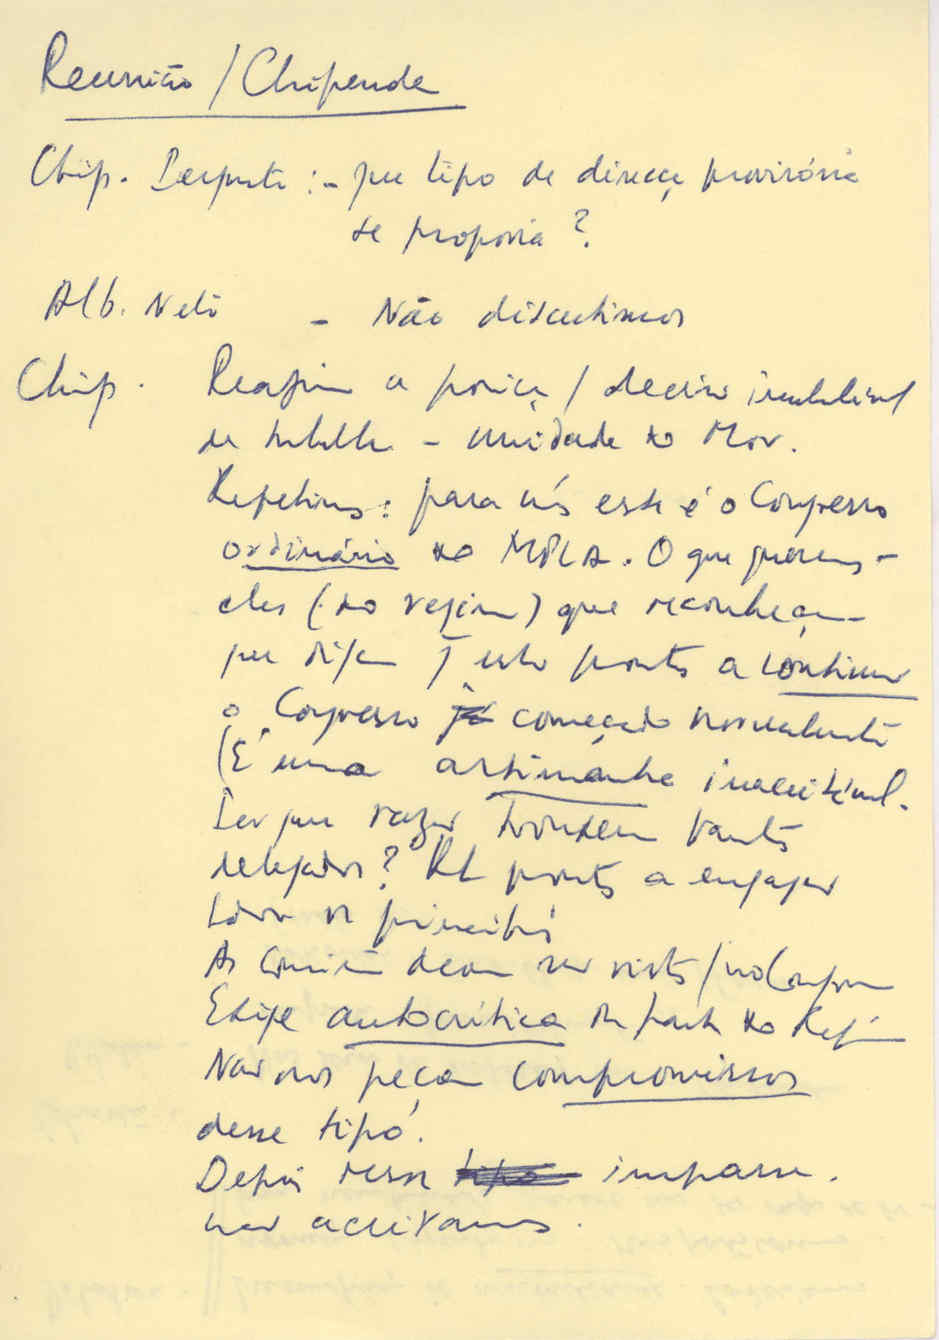 Reunião / Chipenda
Chip. Pergunta: - que tipo de direcç provisória
se proporia?
Alb. Neto - Não discutimos
Chip. Reafirm a posiç / decisão
de trabalh - unidade do Mov.
Repetimos: para nós este é o Congresso
ordinário do MPLA. O que querem -
eles (do regim) que reconheçam -
que digam estão prontos a continuar
o Congresso já começado normalmente
(É uma artimanha inaceitável.
Por que razão
delegados? RL prontos a engajar
princípios
As Comis devem ser vistas / no Congres
Exige autocrítica da parte do
Não nos peçam compromissos
desse tipo.
Depois desse tipo impasse.
não aceitamos.